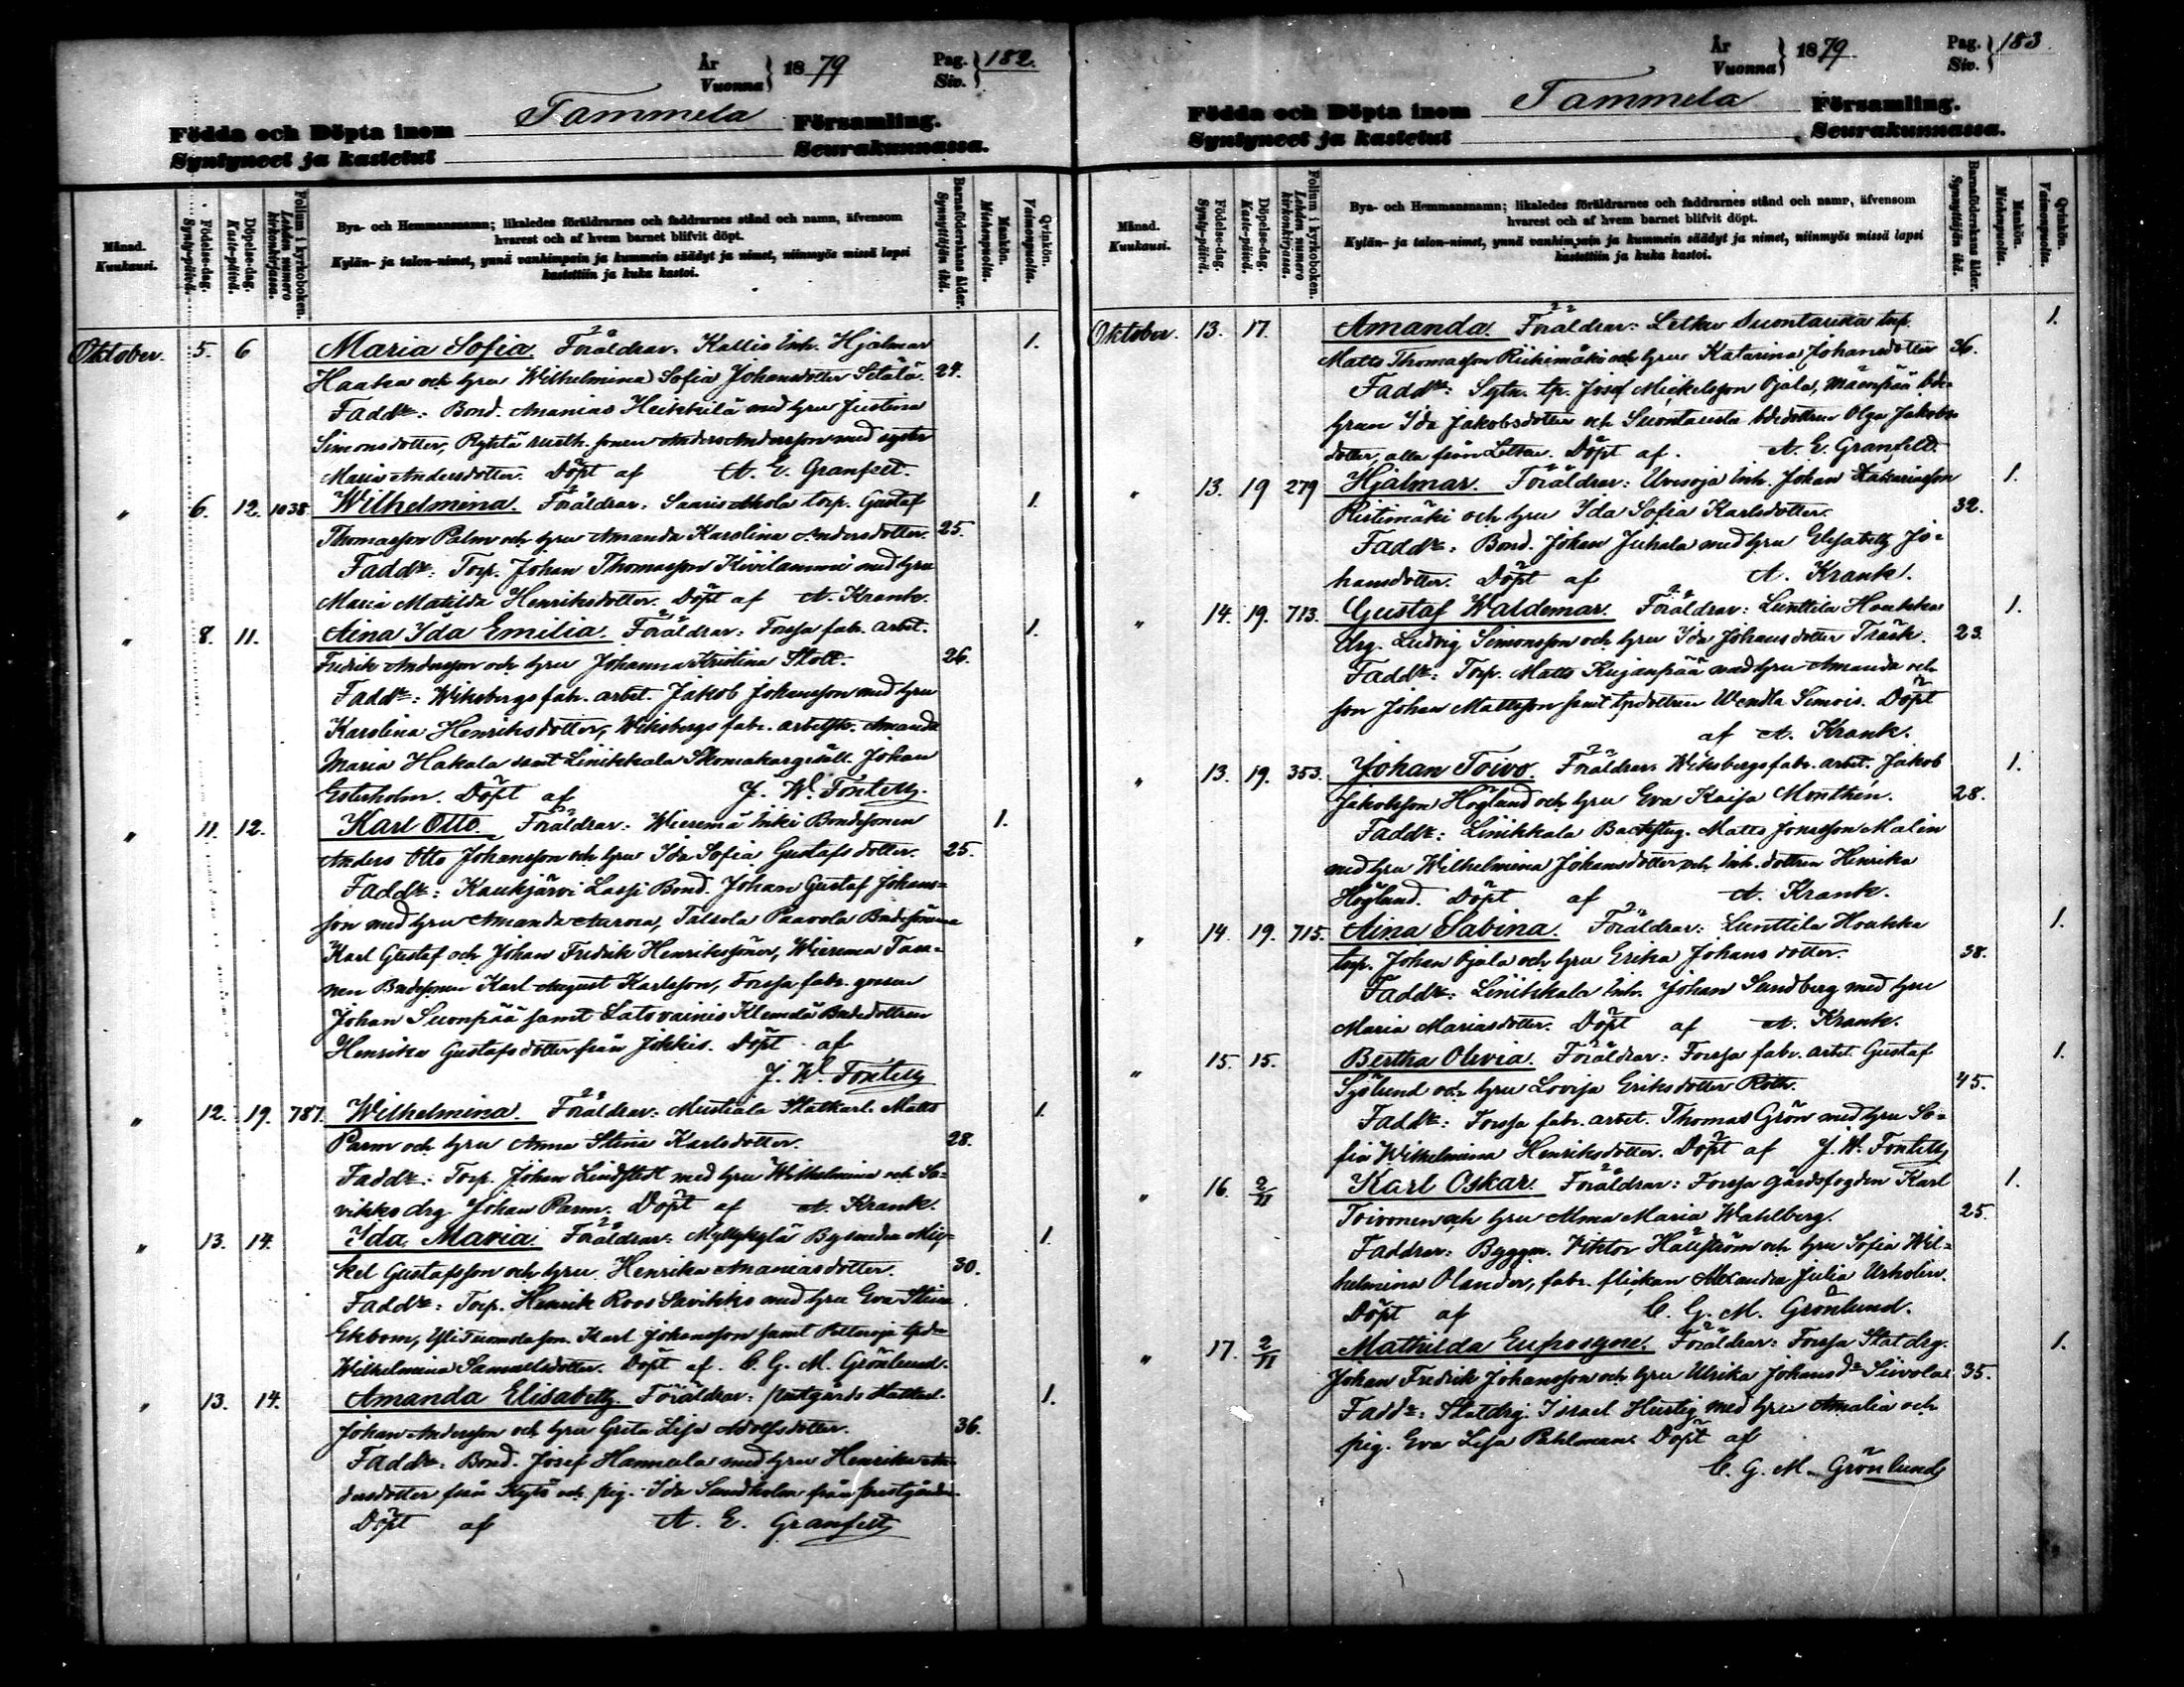 År
Vuonna } 1879 Pag.
Siv. } 182.
Tammela
Födda och Döpta inom Församling.
Syntyneet ja kastetut Seurakunnassa.
Månad.
Kuukausi.
Födelse-dag.
Synty-päivä.
Döpelse-dag.
Kaste-päivä.
Folium i kyrkoboken.
Lehden numero
kirkonkirjassa.
Bya- och Hemmansnamn; likaledes föräldrarnes och faddrarnes stånd och namn, äfvensom
hvarest och af hvem barnet blifvit döpt.
Kylän- ja talon-nimet, ynnä vanhimpain ja kummein säädyt ja nimet, niinmyös missä lapsi
kastettiin ja kuka kastoi.
Barnaföderskans ålder.
Synnyttäjän ikä.
Mankön.
Miehenpuolta.
Qvinkön.
Vaimonpuolta.
Oktober. 5. 6 Maria Sofia. Föräldrar. Kallis Inh. Hjalmar 1.
Haaka och hru Wilhelmina Sofia Johansdotter Setälä. 24.
Faddr: Bond. Ananias Heikkilä med hru Justina
Simonsdotter, Rykilä rusth. sonen Anders Andersson med syster
Maria Andersdotter. Döpt af A. E. Granfelt.
" 6. 12. 1038 Wilhelmina. Föräldrar: Saaris Ahola torp. Gustaf 1.
Thomasson Palm och hru Amanda Karolina Andersdotter. 25.
Faddr: Torp. Johan Thomasson Kivilammi med hru
Maria Matilda Henriksdotter. Döpt af A. Krank.
" 8. 11. Aina Ida Emilia. Föräldrar: Forssa fabr. arbet. 1.
Fredrik Andersson och hru Johanna Kristina Stolt. 26.
Faddr: Wiksbergs fabr. arbet. Jakob Johansson med hru
Karolina Henriksdotter, Wiksbergs fabr. arbetsk. Amanda
Maria Hakala samt Linikkala Skomakargesäll. Johan
Esterholm. Döpt af J. W. Fontell.
" 11. 12. Karl Otto. Föräldrar: Wieremä Inki Bondesonen 1.
Anders Otto Johansson och hru Ida Sofia Gustafsdotter. 25.
Faddr: Kaukjärvi Lassi Bond. Johan Gustaf Johans-
son med hru Amanda Aurora, Talsola Paavola Bndesönerna
Karl Gustaf och Johan Fredrik Henrikssöner, Wierema Tam-
nen Bndesonen Karl August Karlsson, Forssa fabr. gossen
Johan Suonpää samt Latovainio Klemelä Bndedottren
Henrika Gustafsdotter från Jokkis. Döpt af
J. W. Fontell
" 12. 19. 787. Wilhelmina. Föräldrar: Mustiala Statkarl. Matts 1.
Parm och hru Anna Stina Karlsdotter. 28.
Faddr: Torp. Johan Lindstedt med hru Wilhelmina och Sa-
vikko drg. Johan Parm. Döpt af A. Krank.
" 13. 14. Ida Maria. Föräldrar: Myllykylä Bysmeden Mic- 1.
kel Gustafsson och hru Henrika Ananiasdotter. 30.
Faddr: Torp. Henrik Roos Savikko med hru Eva Stina
Ekbom, Yli Tuomola son. Karl Johansson samt
Wilhelmina Samuelsdotter. Döpt af C. G. M. Grönlund.
" 13. 14. Amanda Elisabeth. Föräldrar: Prestgårds Statkarl. 1.
Johan Andersson och hru Greta Lisa Adolfsdotter. 36.
Faddr: Bond. Josef Hannula med hru Henrika An-
dersdotter från Kytö och pig. Ida Sandholm från prestgården.
Döpt af A. E. Granfelt
År
Vuonna } 1879. Pag.
Siv. } 183.
Tammela
Födda och Döpta inom Församling.
Syntyneet ja kastetut Seurakunnassa.
Månad.
Kuukausi.
Födelse-dag.
Synty-päivä.
Döpelse-dag.
Kaste-päivä.
Folium i kyrkoboken.
Lehden numero
kirkonkirjassa.
Bya- och Hemmansnamn; likaledes föräldrarnes och faddrarnes stånd och namn, äfvensom
hvarest och af hvem barnet blifvit döpt.
Kylän- ja talon-nimet, ynnä vanhimpain ja kummein säädyt ja nimet, niinmyös missä lapsi
kastettiin ja kuka kastoi.
Barnaföderskans ålder.
Synnyttäjän ikä.
Mankön.
Miehenpuolta.
Qvinkön.
Vaimonpuolta.
Oktober. 13. 17. Amanda. Föräldrar: Letku Suontausta torp. 1.
Matts Thomasson Riihimäki och hru Katarina Johansdotter 36.
Faddr: Sytn. tp. Josef Mickelsson Ojala, Mäenpää bde-
hrun Ida Jakobsdotter och Suontausta bdedottren Olga Jakobs-
dotter, alla från Letku. Döpt af. A. E. Granfeld.
" 13. 19 279 Hjalmar. Föräldrar: Uvesoja Inh. Johan Zakariasson 1.
Ristimäki och hru Ida Sofia Karlsdotter. 32.
Faddr: Bond. Johan Juhala med hru Elisabeth Jo-
hansdotter. Döpt af A. Krank.
" 14. 19. 713. Gustaf Waldemar. Föräldrar: Lunttila Houkka 1.
drg. Ludvig Simonsson och hru Ida Johansdotter Träsk. 23.
Faddr: Torp. Matts Kujanpää med hru Amanda och
son Johan Mattsson samt tpdottren Wendla Simois. Döpt
af A. Krank.
" 13. 19. 353. Johan Toivo. Föräldrar: Wiksbergs fabr. arbet. Jakob 1.
Jakobsson Höglund och hru Eva Kaisa Monthén. 28.
Faddr: Linikkala Backstug. Matts Jonasson Malin
med hru Wilhelmina Johansdotter och Inh. dottren Henrika
Höglund. Döpt af A. Krank.
" 14. 19. 715. Aina Sabina. Föräldrar: Lunttila Houkka 1.
torp. Johan Ojala och hru Erika Johansdotter. 38.
Faddr: Linikkala Inh. Johan Sandberg med hru
Maria Mariasdotter. Döpt af A. Krank.
" 15. 15. Bertha Olivia. Föräldrar: Forssa fabr. arbet. Gustaf 1.
Sjölund och hru Lovisa Eriksdotter Roth. 45.
Faddr: Forssa fabr. arbet. Thomas Grön med hru So-
fia Wilhelmina Henriksdotter. Döpt af J. W. Fontell
" 16. 2/11 Karl Oskar. Föräldrar: Forssa gårdsfogden Karl 1.
Toivonen och hru Alma Maria Wahlberg. 25.
Faddrar: Byggm. Viktor Hällström och hru Sofia Wil-
helmina Olander, fabr. flickan Alexandra Julia Urholin.
Döpt af C. G. M. Grönlund.
" 17. 2/11 Mathilda Euposyne. Föräldrar: Forssa Statdrg. 1.
Johan Fredrik Johansson och hru Ulrika Johansdr Siivola 35.
Faddr: Statdrg. Israel Hurtig med hru Amalia och
pig. Eva Lisa Pahlman. Döpt af
C. G. M. Grönlund